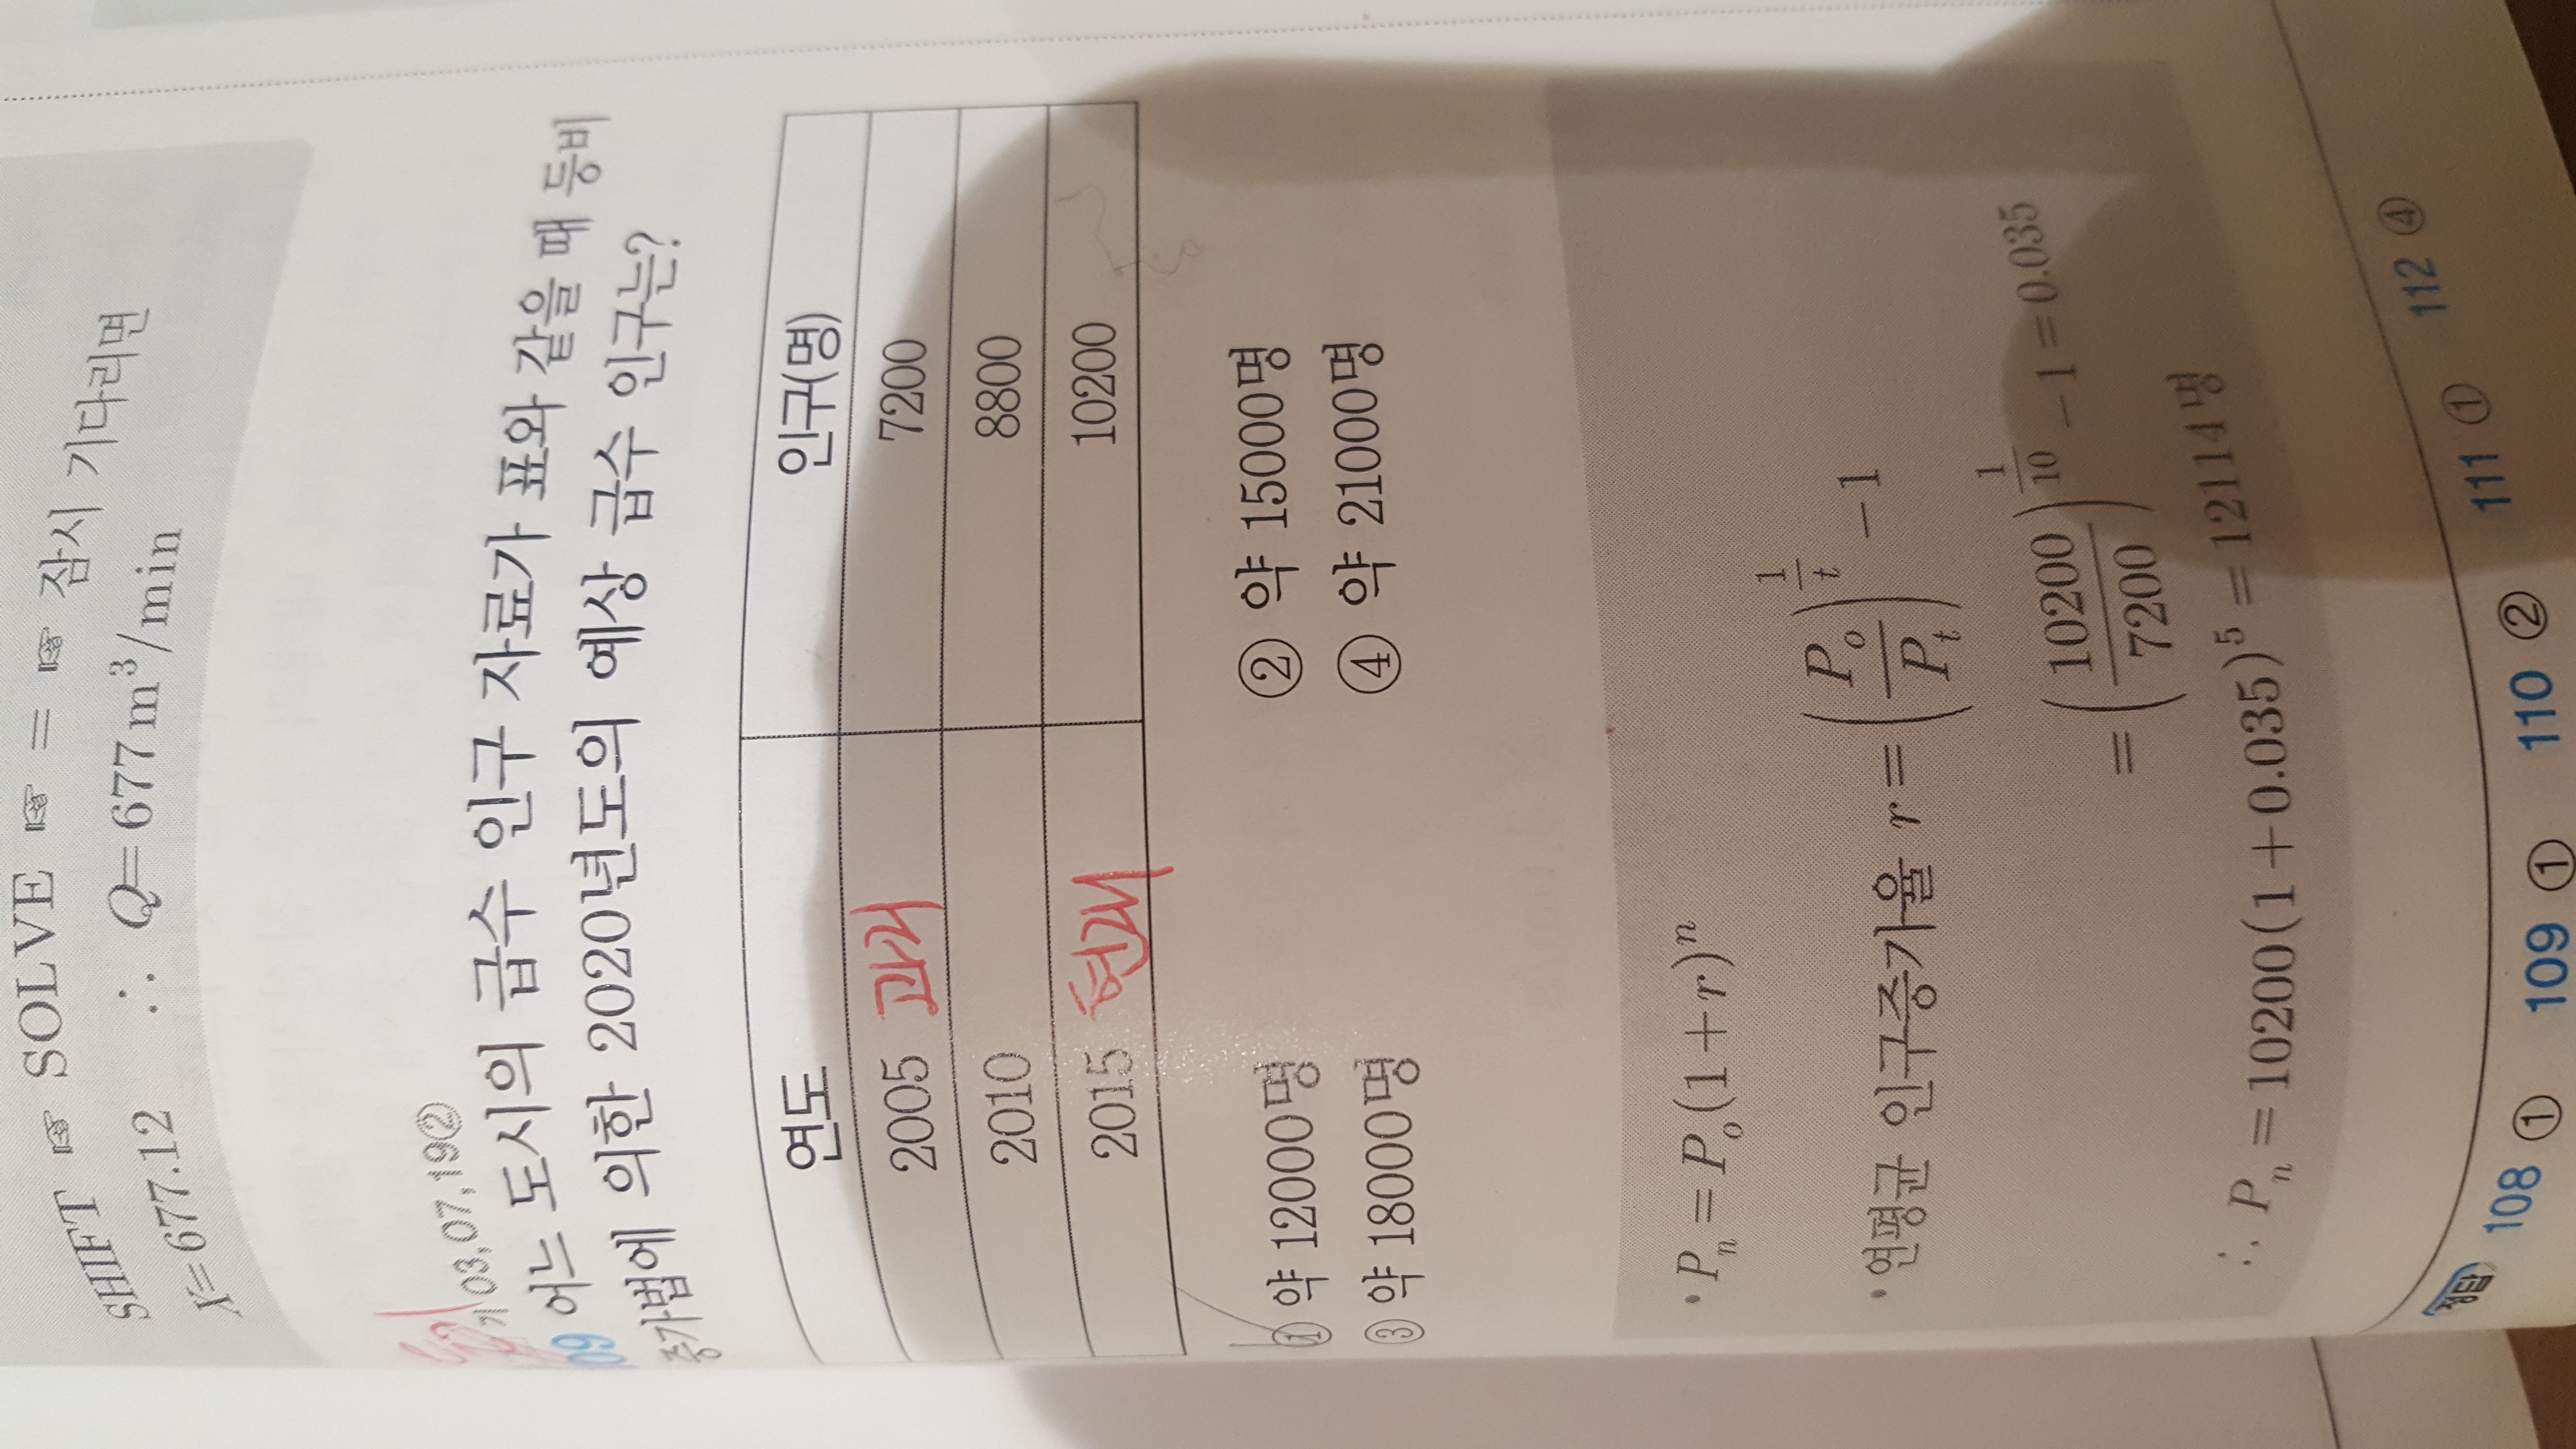 SHIFT ☞ SOLVE ☞ = ☞ 잠시 기다리면
X=677.12 ∴ Q=677m³/min
기03,07,19②
09 어느 도시의 급수 인구 자료가 표와 같을 때 등비
증가법에 의한 2020년도의 예상 급수 인구는?
연도 인구(명)
2005 과거 7200
2010 8800
2015 현재 10200
① 약 12000명 ② 약 15000명
③ 약 18000명 ④ 약 21000명
• Pₙ = Pₒ(1+r)ⁿ
• 연평균 인구증가율 r = (Pₒ/Pₜ)^(1/t) − 1
= (10200/7200)^(1/10) − 1 = 0.035
∴ Pₙ = 10200(1+0.035)⁵ = 12114명
정답 108 ① 109 ① 110 ② 111 ① 112 ④